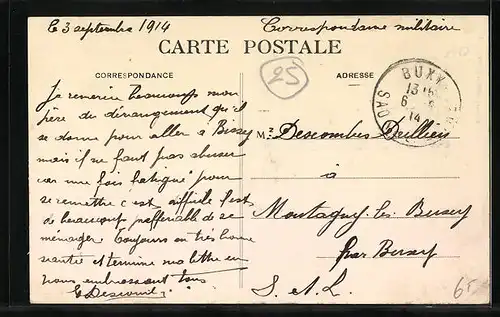 Le 3 septembre 1914
Correspondance militaire
CARTE POSTALE
25
CORRESPONDANCE
ADRESSE
BUXY
13
6
14
SAO
Je remercie beaucoup mon
père du dérangement qu'il
se donne pour aller à Bissey
mais il ne faut pas abuser
car une fois fatigué pour
se remettre c'est difficile
de beaucoup préfferable de se
ménager Toujours en très bonne
santé et termine ma lettre en
vous embrassant tous
M Descombes
à
Montagny les Buxy
par Buxy
S. et L.